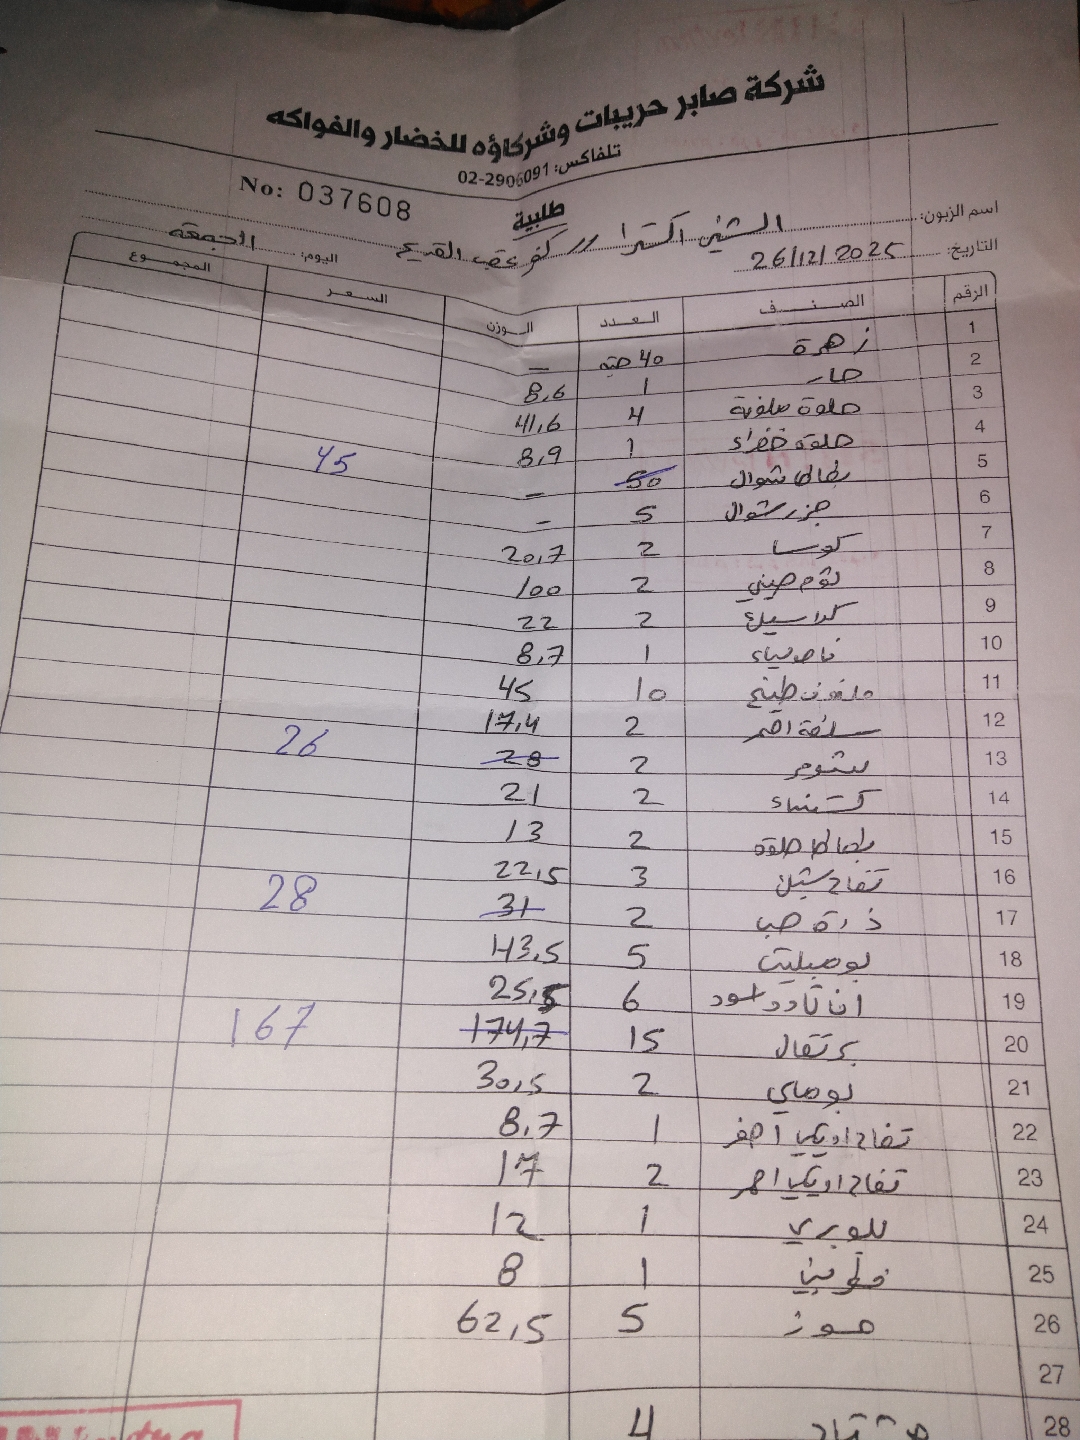 شركة صابر حريبات وشركاؤه للخضار والفواكه
تلفاكس: 02-2906091
No: 037608
طلبية
اسم الزبون: الشني اكسترا // كفر عقب القديم
التاريخ: 26/12/2025 اليوم: الجمعة
الرقم الصنف العدد الوزن السعر المجموع
1 زهرة 40 حبه –
2 حار 1 8,6
3 حلوة ملونة 4 41,6
4 حلوة خضراء 1 8,9
5 بطاطا شوال 50 – 45
6 جزر شوال 5 –
7 كوسا 2 20,7
8 ثوم صيني 2 100
9 2 22
10 فاصولياء 1 8,7
11 ملفوف 10 45
12 احمر 2 17,4
13 2 28 26
14 كستناء 2 21
15 بطاطا حلوة 2 13
16 تفاح 3 22,5
17 ذرة حب 2 31 28
18 5 43,5
19 اسود 6 25,5
20 برتقال 15 174,7 167
21 2 30,5
22 تفاح اصفر 1 8,7
23 تفاح احمر 2 17
24 1 12
25 1 8
26 موز 5 62,5
27
28 4